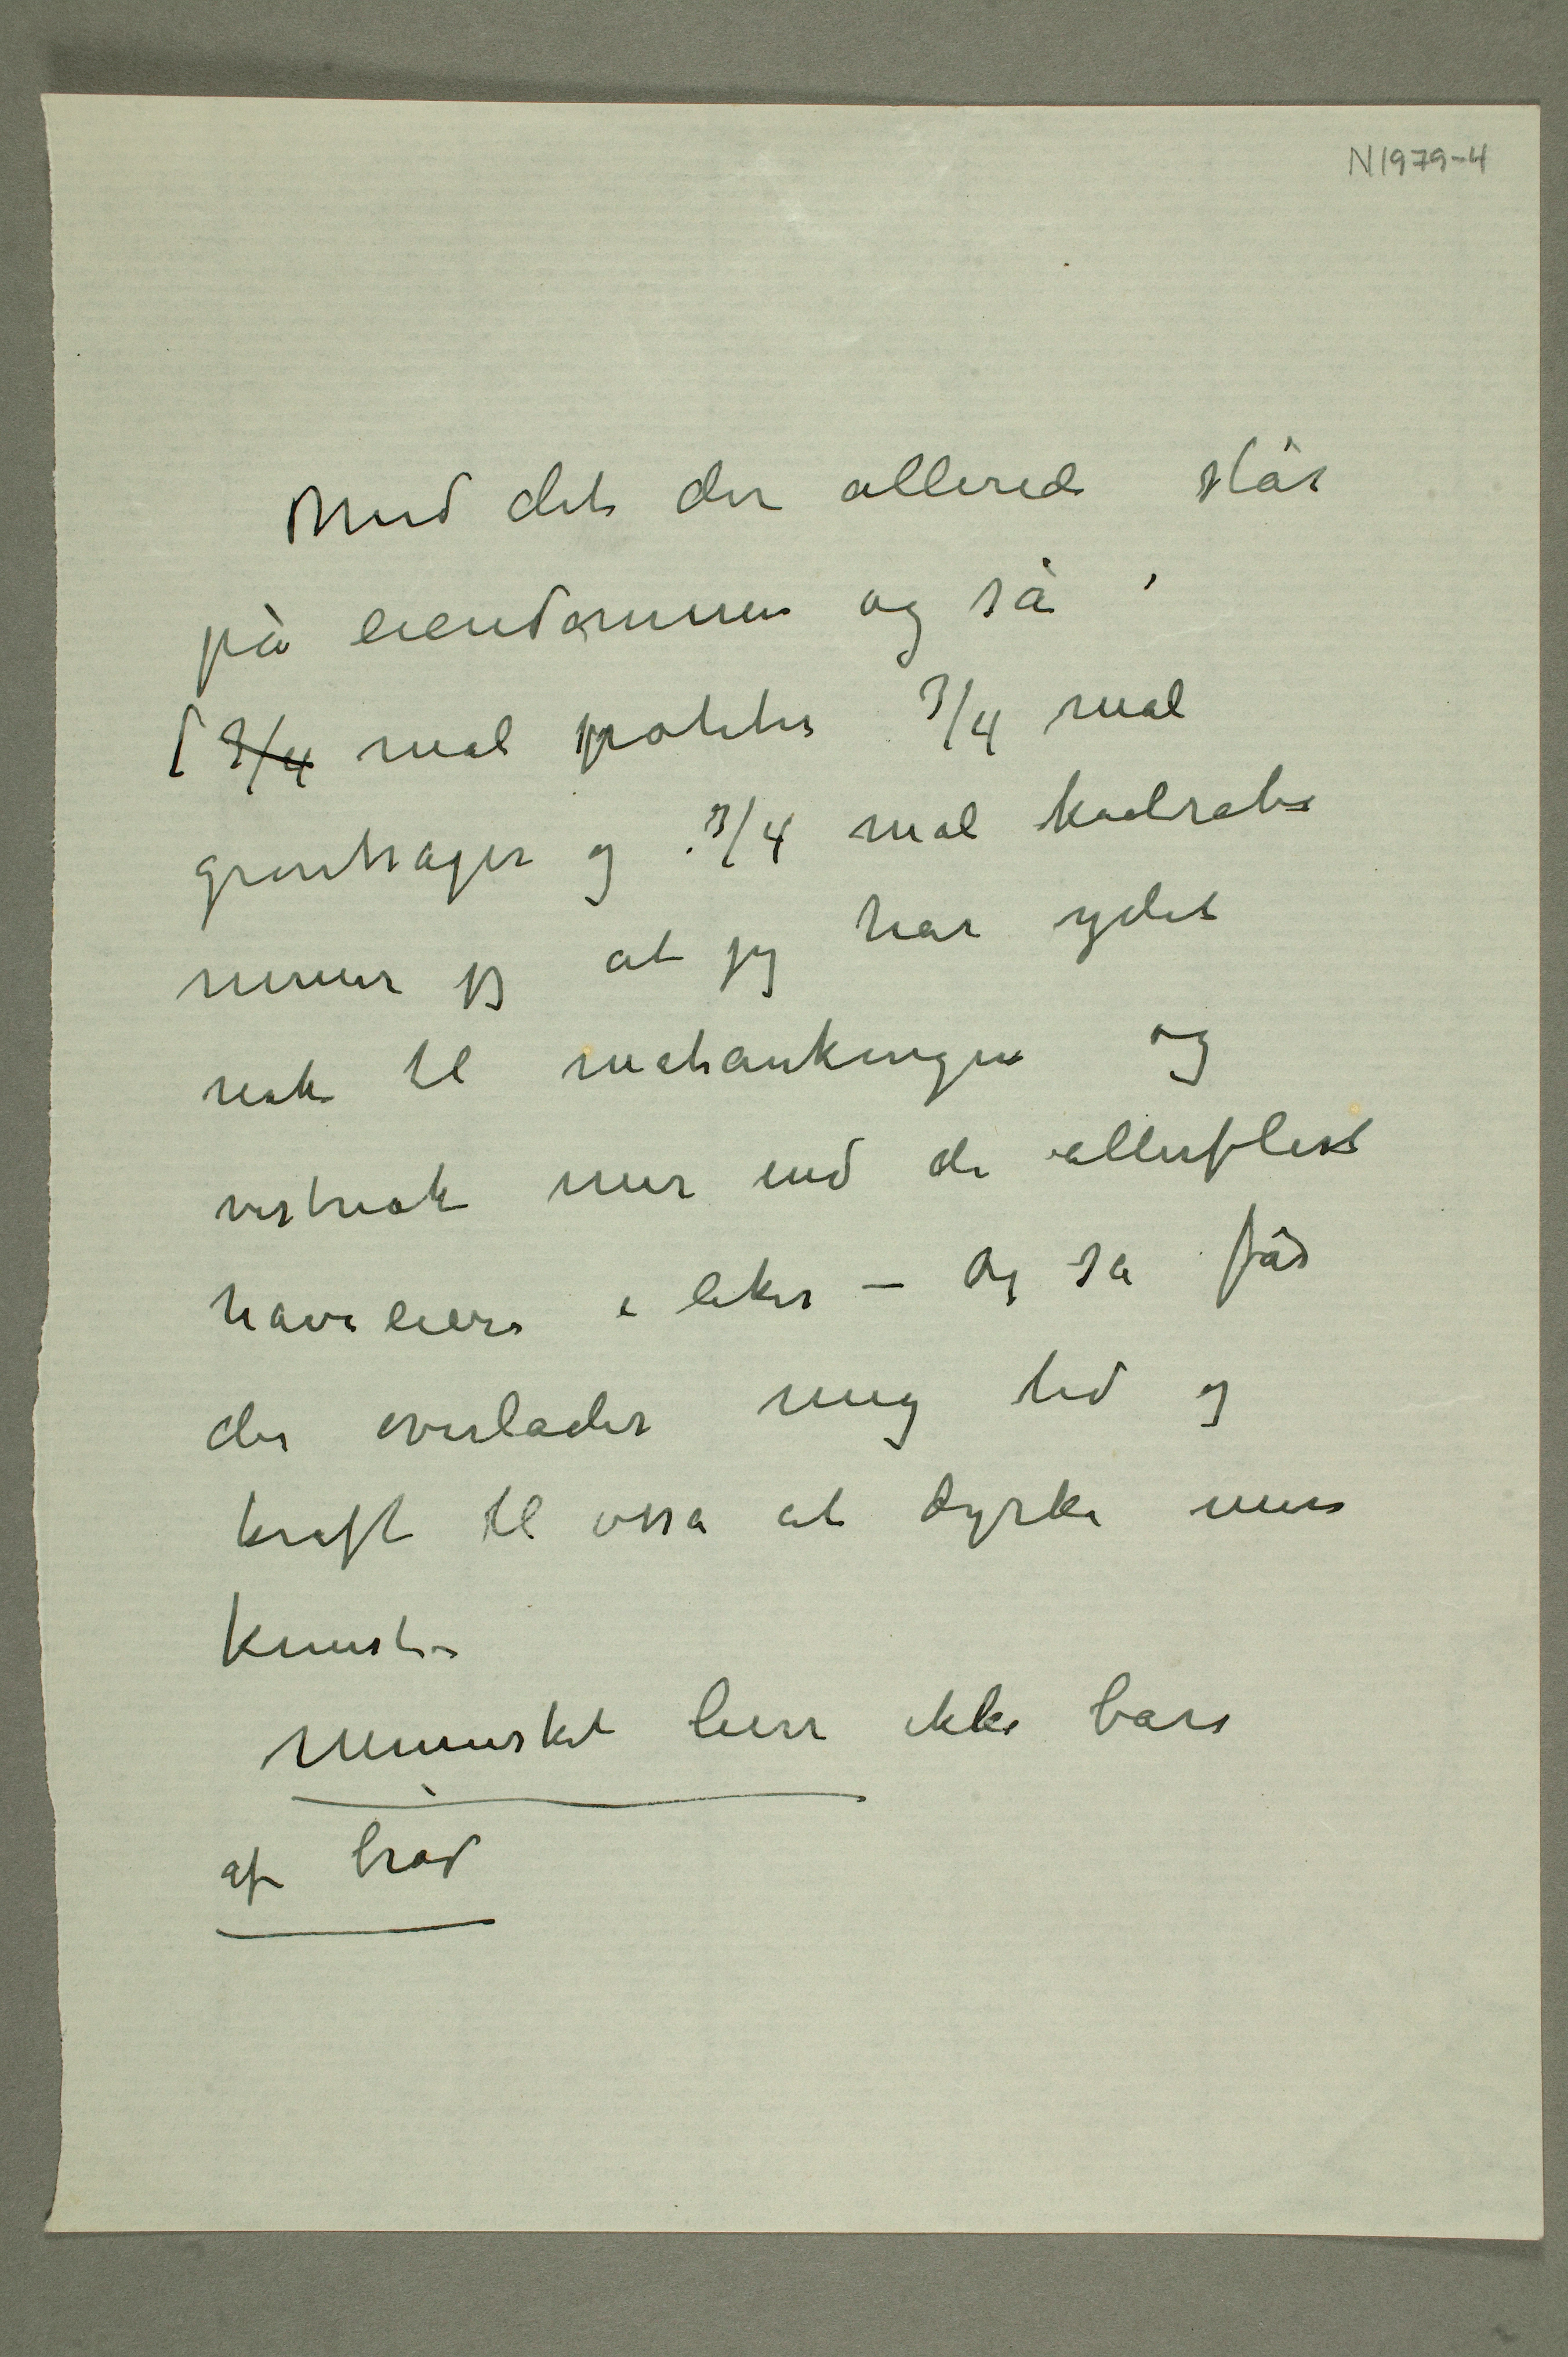 N1979-4
Med det der allerede står
på eiendommen og så
1 3/4 mål poteter 3/4 mål
grøntsager og 3/4 mål kaalrabi
mener jeg at jeg har ydet
nok til matauking og
vistnok mer end de allerflest
haveeiere i likes – Og så får
der overlades mig tid og
kraft til osså at dyrke min
kunst –
Mennesket lever ikke bare
af brød